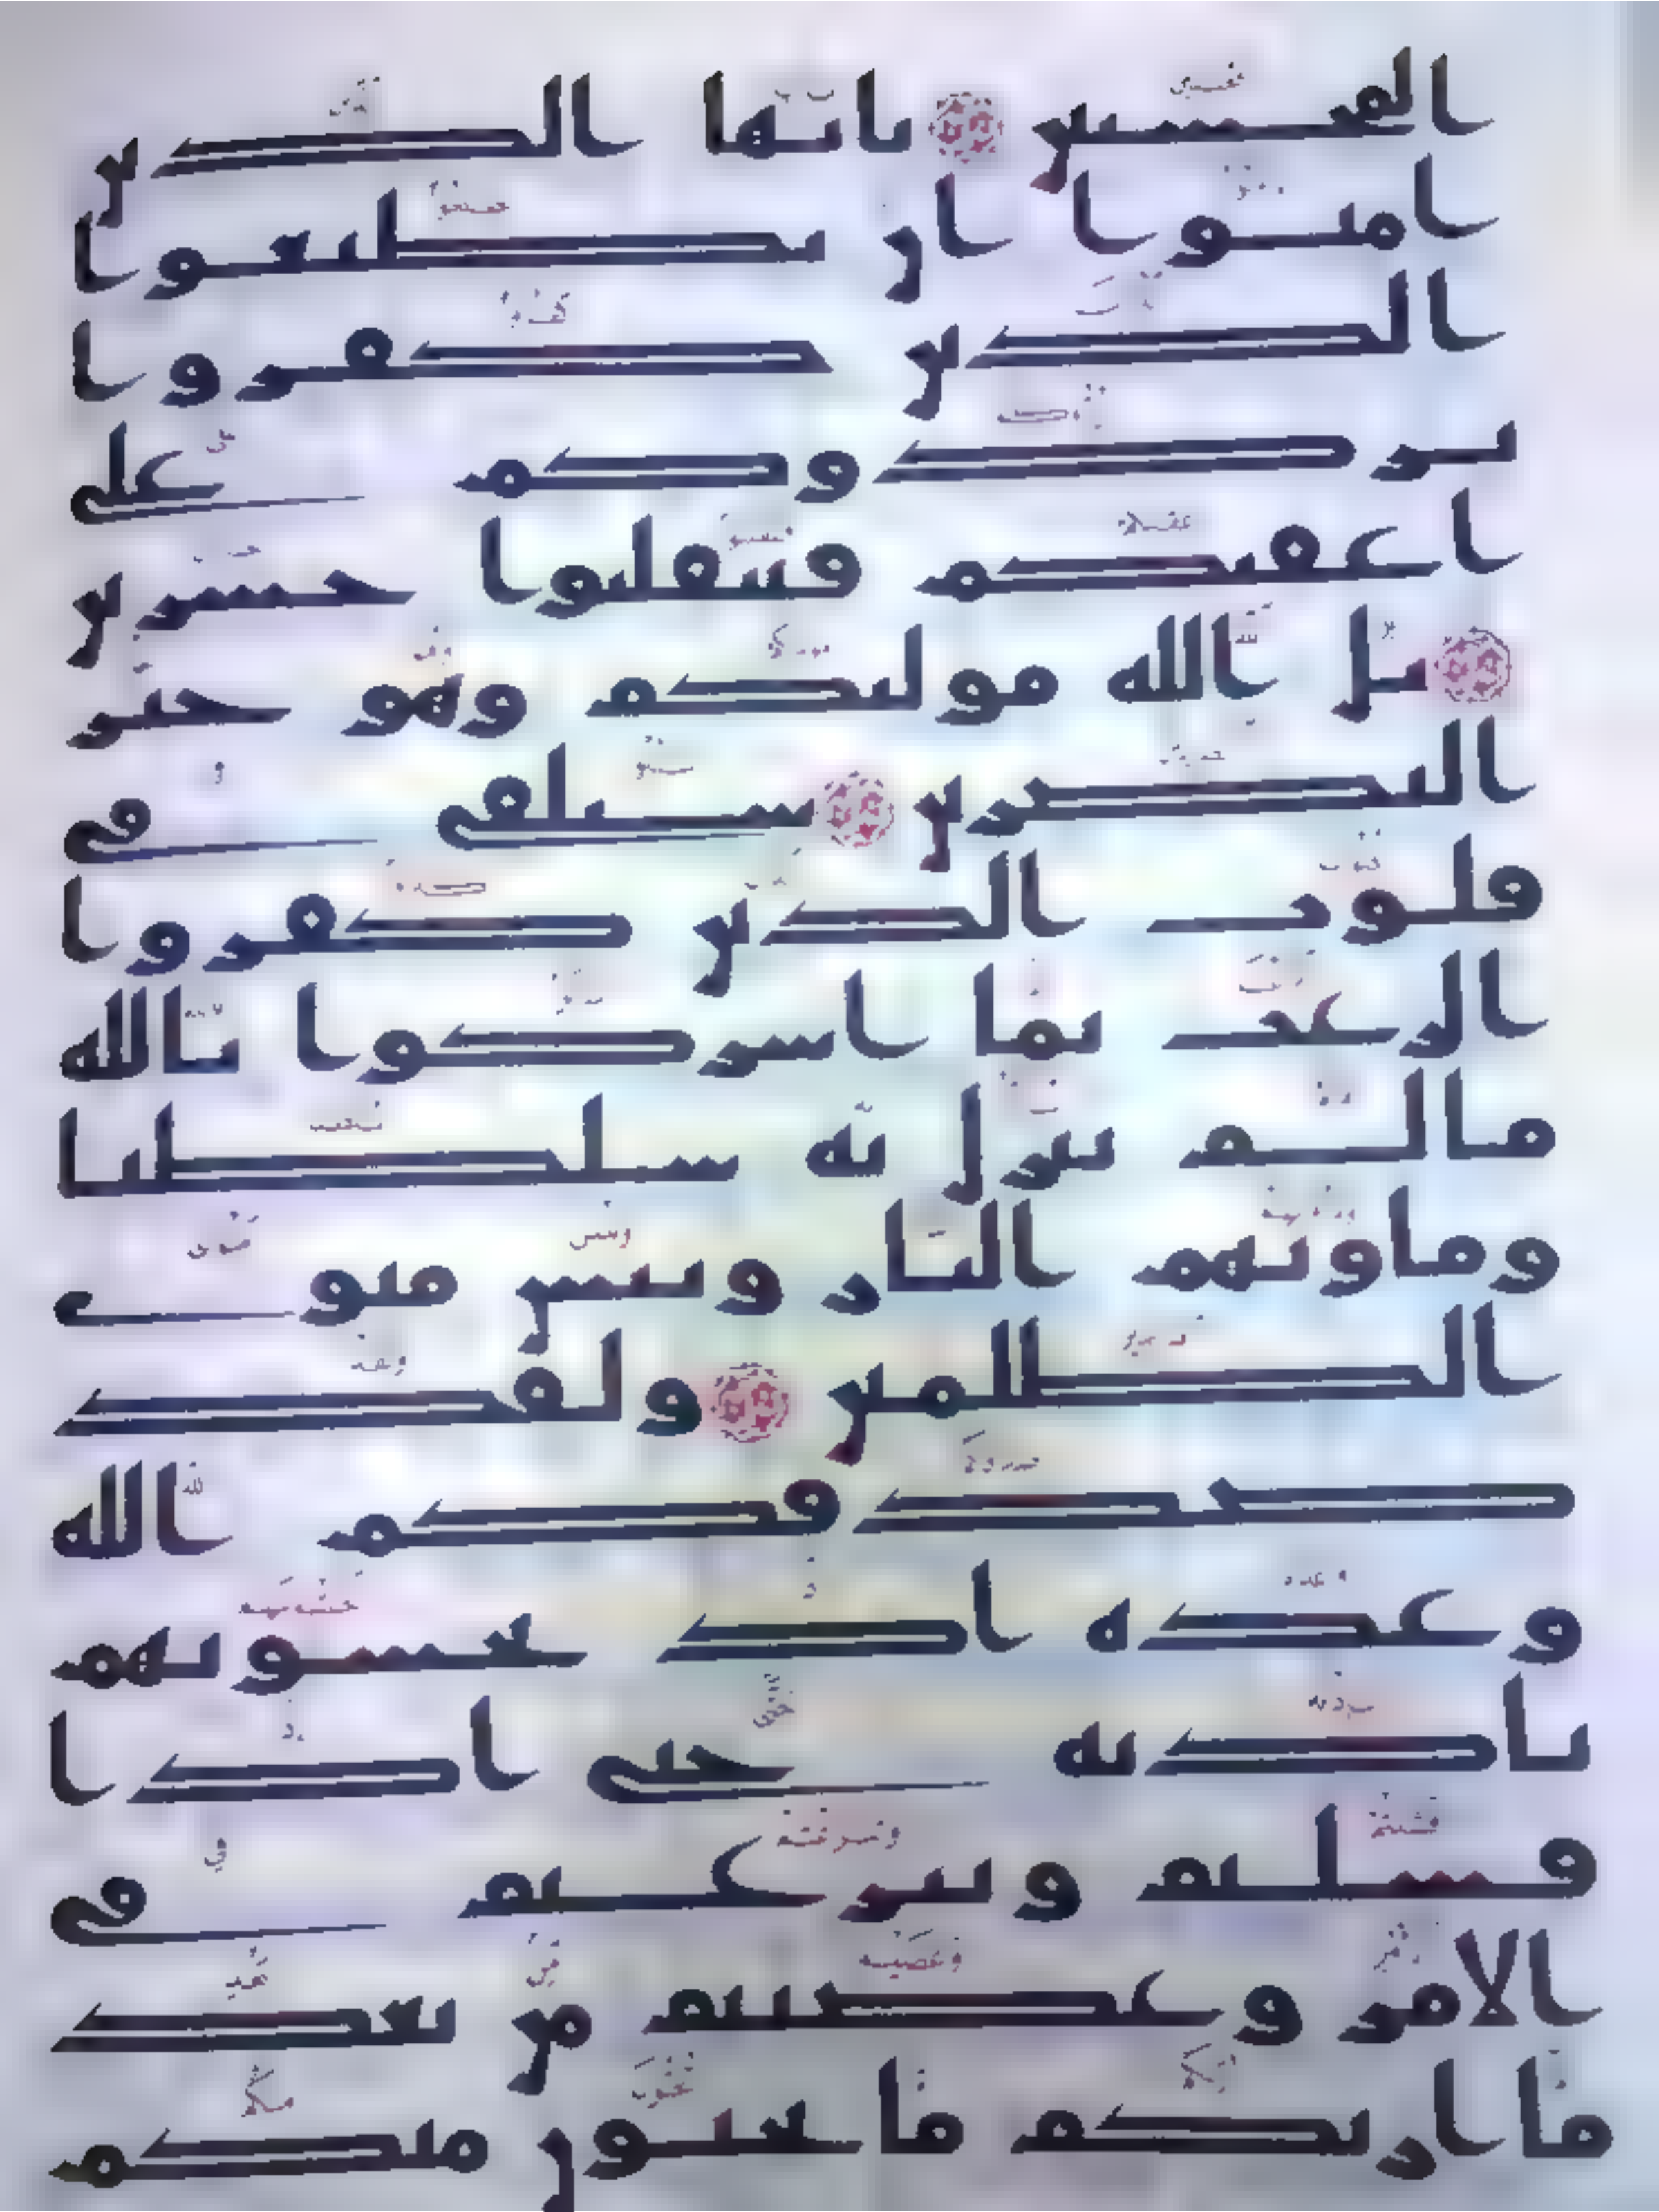 المحسنين يايها الذين
امنوا ان تطيعوا
الذين كفروا
يردوكم على
اعقبكم فتنقلبوا خسرين
بل الله موليكم وهو خير
النصرين سنلقى فى
قلوب الذين كفروا
الرعب بما اشركوا بالله
ما لم ينزل به سلطنا
وماويهم النار وبئس مثوى
الظلمين ولقد
صدقكم الله
وعده اذ تحسونهم
باذنه حتى اذا
فشلتم وتنزعتم فى
الامر وعصيتم من بعد
ما اريكم ما تحبون منكم